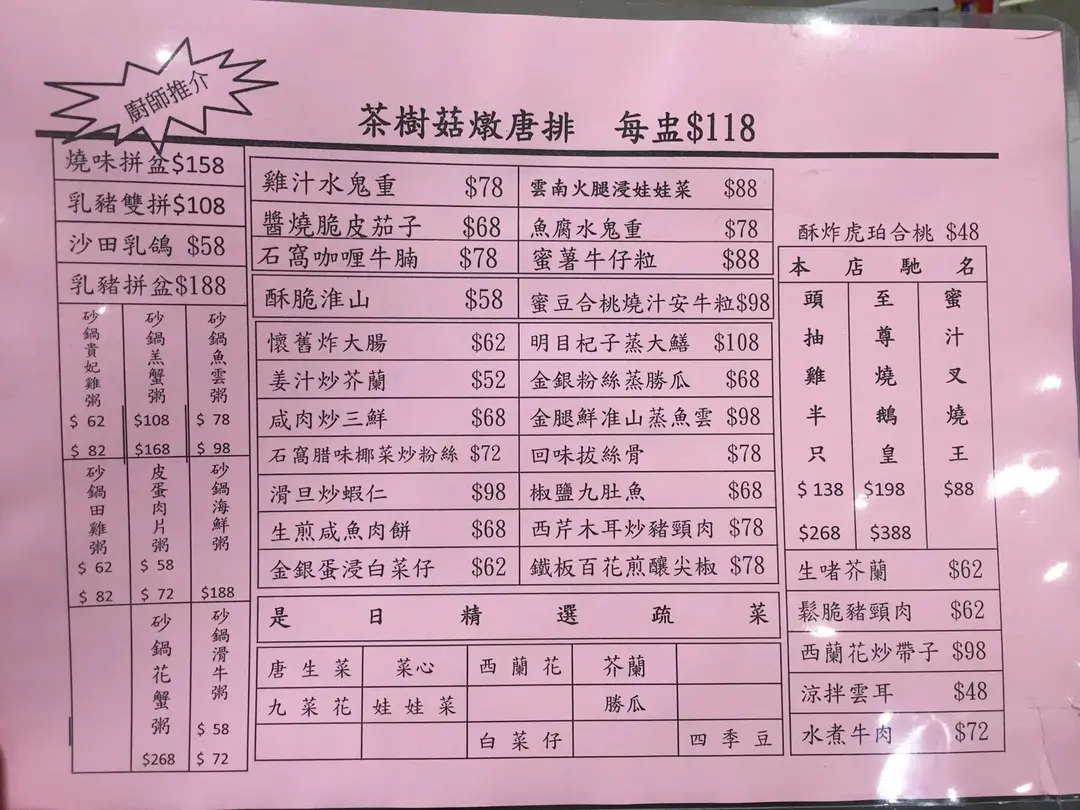 廚師推介
茶樹菇燉唐排 每盅$118
燒味拼盆$158
乳豬雙拼$108
沙田乳鴿 $58
乳豬拼盆$188
砂鍋貴妃雞粥 $ 62 $ 82
砂鍋羔蟹粥 $108 $168
砂鍋魚雲粥 $ 78 $ 98
砂鍋田雞粥 $ 62 $ 82
皮蛋肉片粥 $ 58 $ 72
砂鍋海鮮粥 $188
砂鍋花蟹粥 $268
砂鍋滑牛粥 $ 58 $ 72
雞汁水鬼重 $78
雲南火腿浸娃娃菜 $88
醬燒脆皮茄子 $68
魚腐水鬼重 $78
石窩咖喱牛腩 $78
蜜薯牛仔粒 $88
酥脆淮山 $58
蜜豆合桃燒汁安牛粒$98
懷舊炸大腸 $62
明目杞子蒸大鱔 $108
姜汁炒芥蘭 $52
金銀粉絲蒸勝瓜 $68
咸肉炒三鮮 $68
金腿鮮准山蒸魚雲 $98
石窩腊味椰菜炒粉絲 $72
回味拔絲骨 $78
滑旦炒蝦仁 $98
椒鹽九肚魚 $68
生煎咸魚肉餅 $68
西芹木耳炒豬頸肉 $78
金銀蛋浸白菜仔 $62
鐵板百花煎釀尖椒 $78
是日精選疏菜
唐生菜 菜心 西蘭花 芥蘭
九菜花 娃娃菜 勝瓜
白菜仔 四季豆
酥炸虎珀合桃 $48
本店馳名
頭抽雞半只 $ 138 $268
至尊燒鵝皇 $198 $388
蜜汁叉燒王 $88
生啫芥蘭 $62
鬆脆豬頸肉 $62
西蘭花炒帶子 $98
涼拌雲耳 $48
水煮牛肉 $72